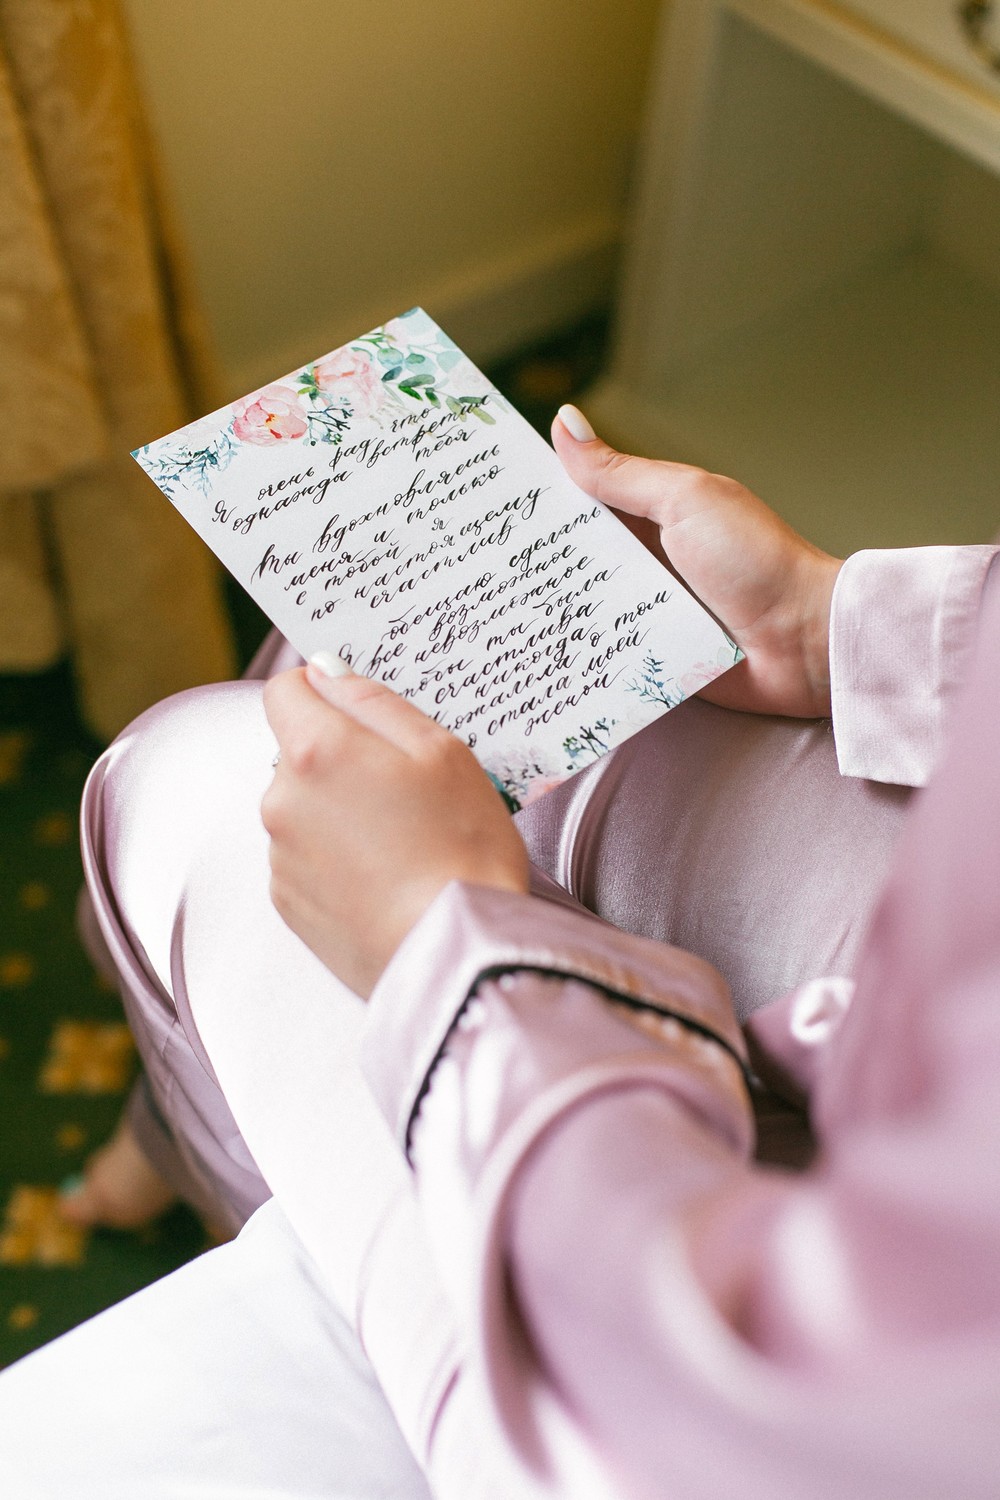 Я очень рад что
однажды встретил
тебя
Ты вдохновляешь
меня и только
с тобой я
по настоящему
счастлив
Я обещаю сделать
все возможное
и невозможное
чтобы ты была
счастлива
и никогда
пожалела о том
стала моей
женой